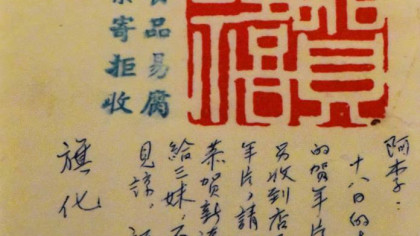 品易腐
寄拒收
阿李：
十八日的
的贺年片
另收到店
年片，請
恭贺新
給三妹，
見諒，
旗化